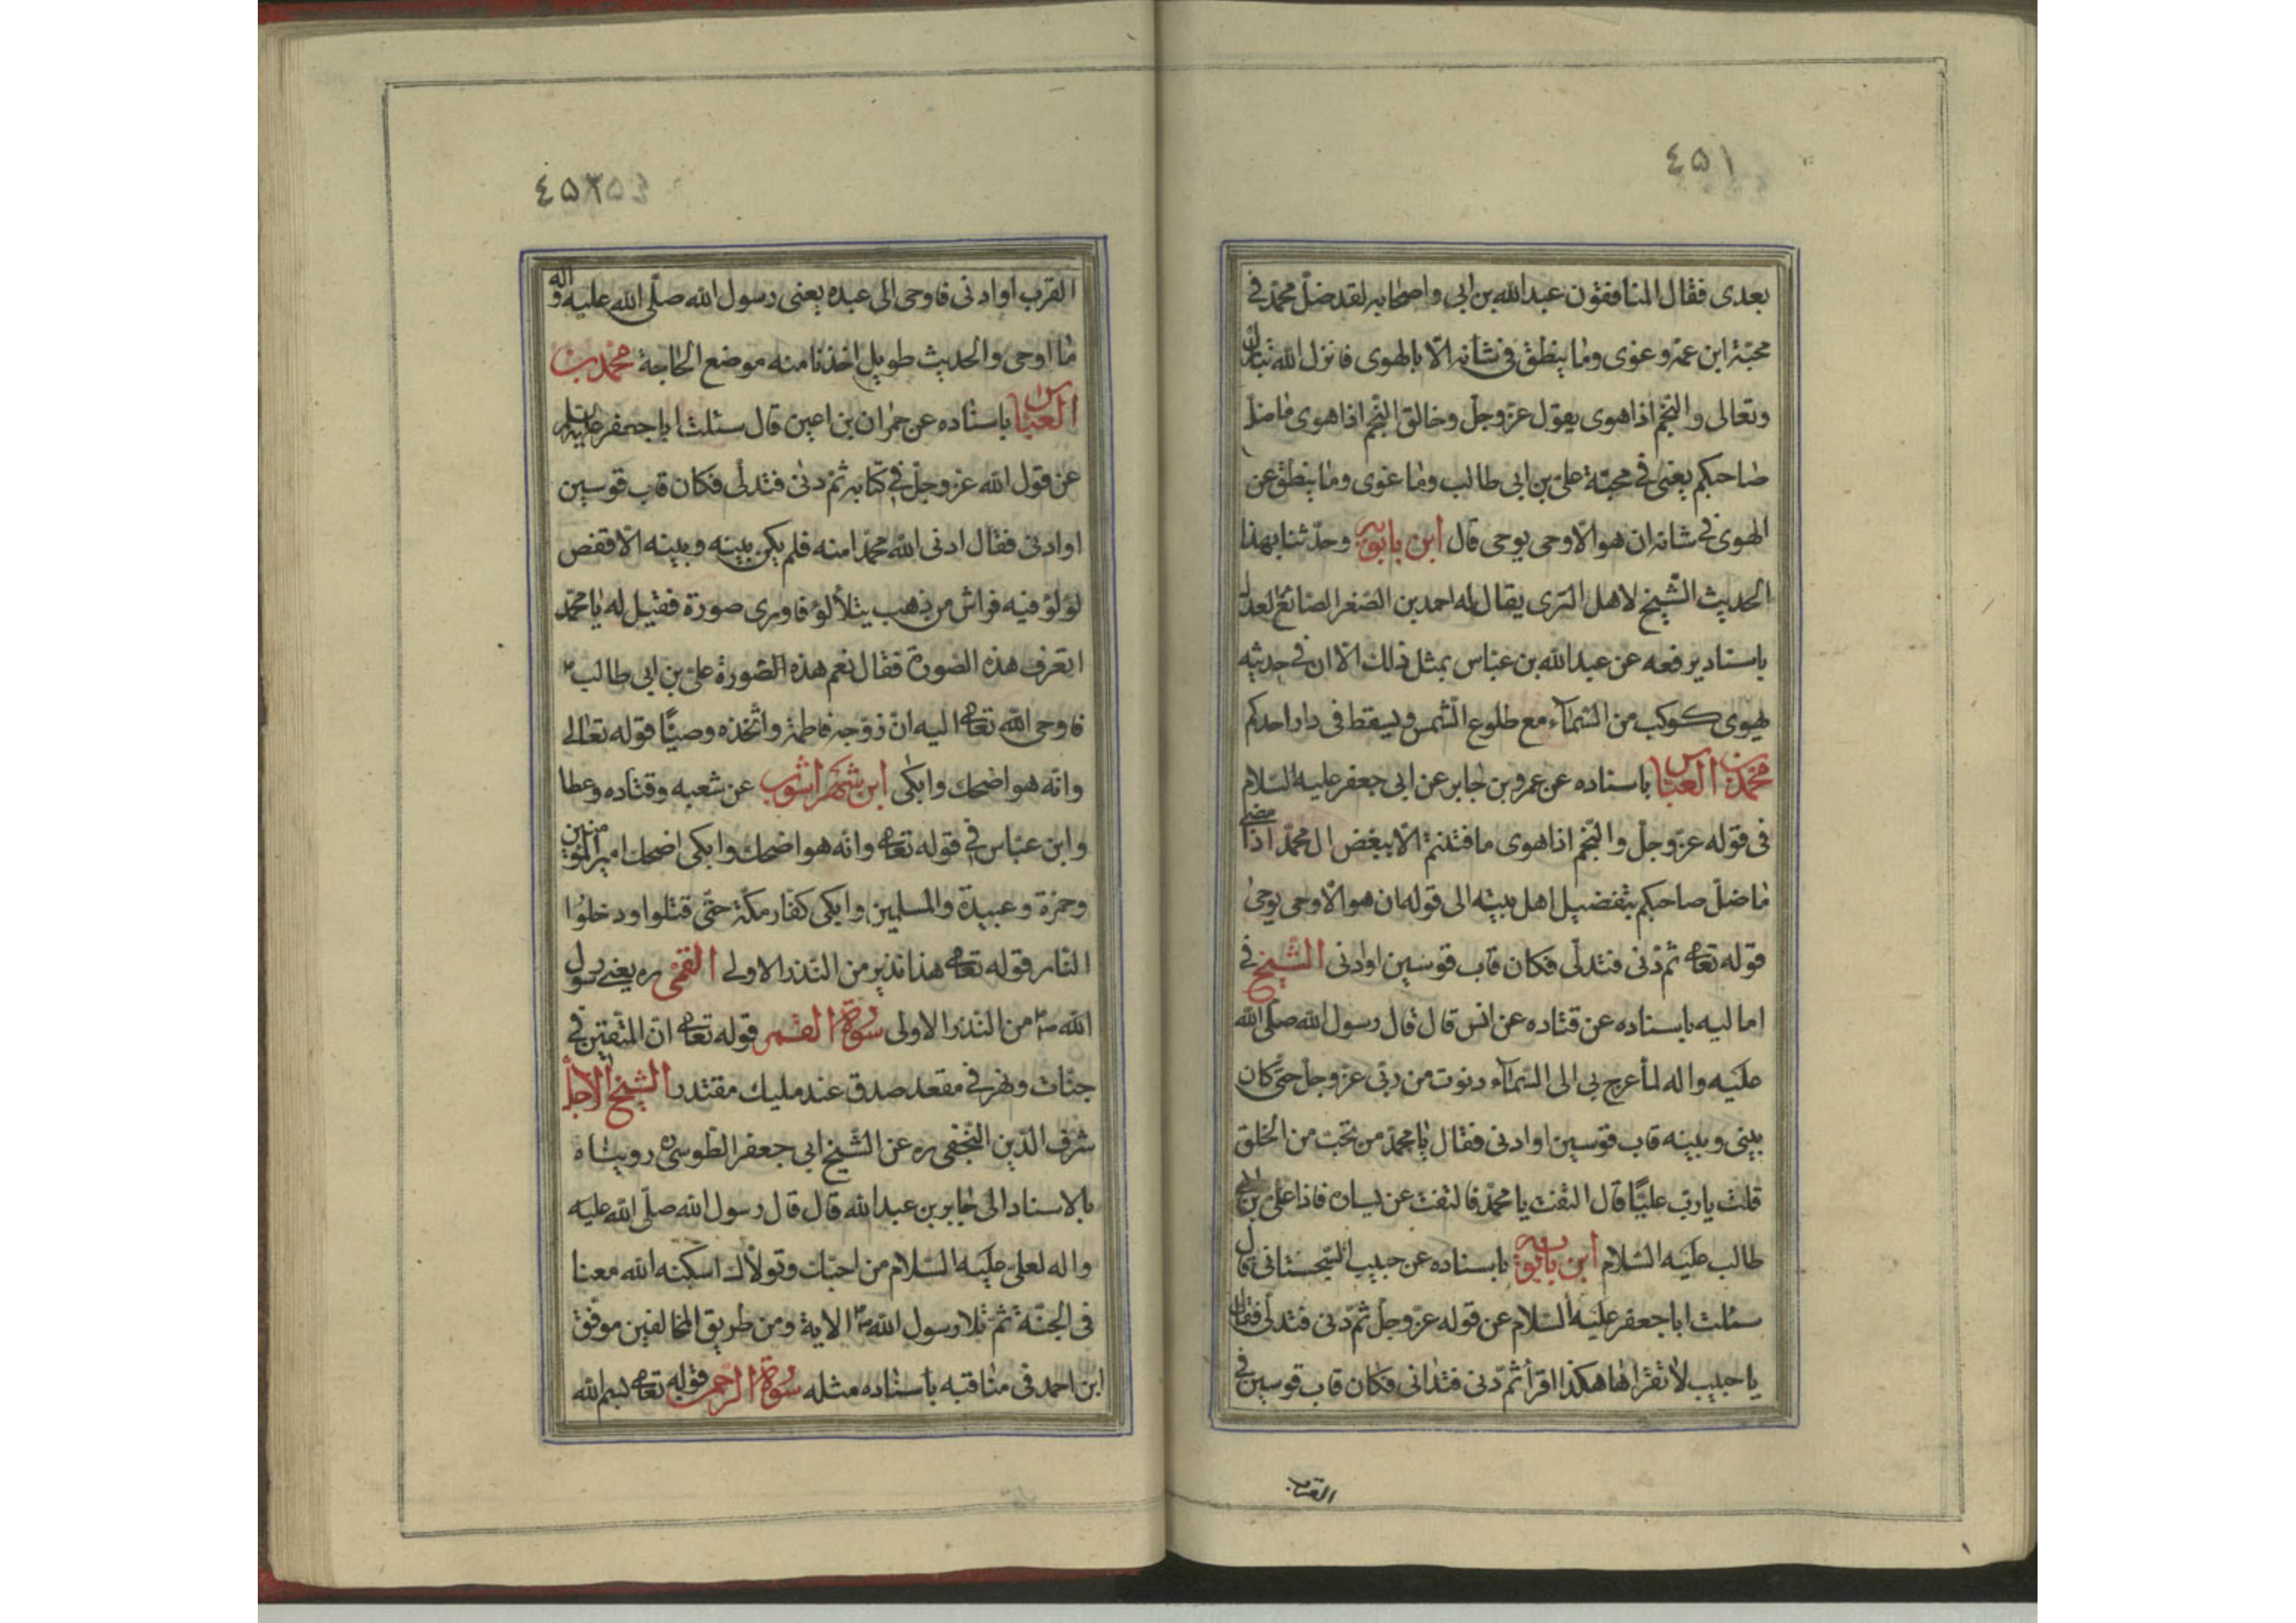 ٤٥١
بعدى فقال المنافقون عبدالله بن ابى واصحابه لقد ضلّ محمّد فى
محبّة ابن عمّه وغوى وما ينطق فى شانه الّا بالهوى فانزل الله تبارك
وتعالى والنّجم اذا هوى يقول عزّوجلّ وخالق النّجم اذا هوى ما ضلّ
صاحبكم يعنى فى محبّة علىّ بن ابى طالب وما غوى وما ينطق عن
الهوى فى شانه ان هو الّا وحى يوحى قال ابن بابويه وحدّثنا بهذا
الحديث الشّيخ لاهل الرّى يقال له احمد بن الصّغر الصّائغ العدل
باسناد يرفعه عن عبدالله بن عبّاس بمثل ذلك الّا ان فى حديثه
يهوى كوكب من السّماء مع طلوع الشّمس ويسقط فى دار احدكم
محمّد بن العبّاس باسناده عن عمرو بن جابر عن ابى جعفر عليه السّلام
فى قوله عزّوجلّ والنّجم اذا هوى ما فتنتم الّا ببغض ال محمّد اذا مضى
ما ضلّ صاحبكم بتفضيل اهل بيته الى قوله ان هو الّا وحى يوحى
قوله تعالى ثمّ دنى فتدلّى فكان قاب قوسين او ادنى الشّيخ فى
اماليه باسناده عن قتاده عن انس قال قال رسول الله صلّى الله
عليه واله لمّا عرج بى الى السّماء دنوت من ربّى عزّوجلّ حتّى كان
بينى وبينه قاب قوسين او ادنى فقال يا محمّد من تحبّ من الخلق
قلت يا ربّ عليّا قال التفت يا محمّد فالتفت عن يسارى فاذا علىّ بن ابى
طالب عليه السّلام ابن بابويه باسناده عن حبيب السّجستانى قال
سئلت ابا جعفر عليه السّلام عن قوله عزّوجلّ ثمّ دنى فتدلّى فقال
يا حبيب لا تقراها هكذا اقرأ ثمّ دنى فتدانى فكان قاب قوسين فى
القرب
٤٥٢
القرب او ادنى فاوحى الى عبده يعنى رسول الله صلّى الله عليه واله
ما اوحى والحديث طويل اخذنا منه موضع الحاجة محمّد بن
العبّاس باسناده عن حمران بن اعين قال سئلت ابا جعفر عليه السلم
عن قول الله عزّوجلّ فى كتابه ثمّ دنى فتدلّى فكان قاب قوسين
او ادنى فقال ادنى الله محمّدا منه فلم يكن بينه وبينه الّا قفص
لؤلؤ فيه فراش من ذهب يتلألؤ فاورى صورة فقيل له يا محمّد
اتعرف هذه الصّورة فقال نعم هذه الصّورة علىّ بن ابى طالب ع
فاوحى الله تعالى اليه ان زوّجه فاطمة واتّخذه وصيّا قوله تعالى
وانّه هو اضحك وابكى ابن شهراشوب عن شعبه وقتاده وعطا
وابن عبّاس فى قوله تعالى وانّه هو اضحك وابكى اضحك امير المؤمنين
وحمزة وعبيدة والمسلمين وابكى كفّار مكّة حتّى قتلوا ودخلوا
النّار قوله تعالى هذا نذير من النّذر الاولى القمّى ره يعنى رسول
الله ص من النّذر الاولى سورة القمر قوله تعالى انّ المتّقين فى
جنّات ونهر فى مقعد صدق عند مليك مقتدر الشّيخ الاجلّ
شرف الدّين النّجفى ره عن الشّيخ ابى جعفر الطّوسى ره رويناه
بالاسناد الى جابر بن عبدالله قال قال رسول الله صلّى الله عليه
واله لعلى عليه السّلام من احبّك وتولّاك اسكنه الله معنا
فى الجنّة ثمّ تلا رسول الله ص الاية ومن طريق المخالفين موفّق
ابن احمد فى مناقبه باسناده مثله سورة الرّحمن قوله تعالى بسم الله